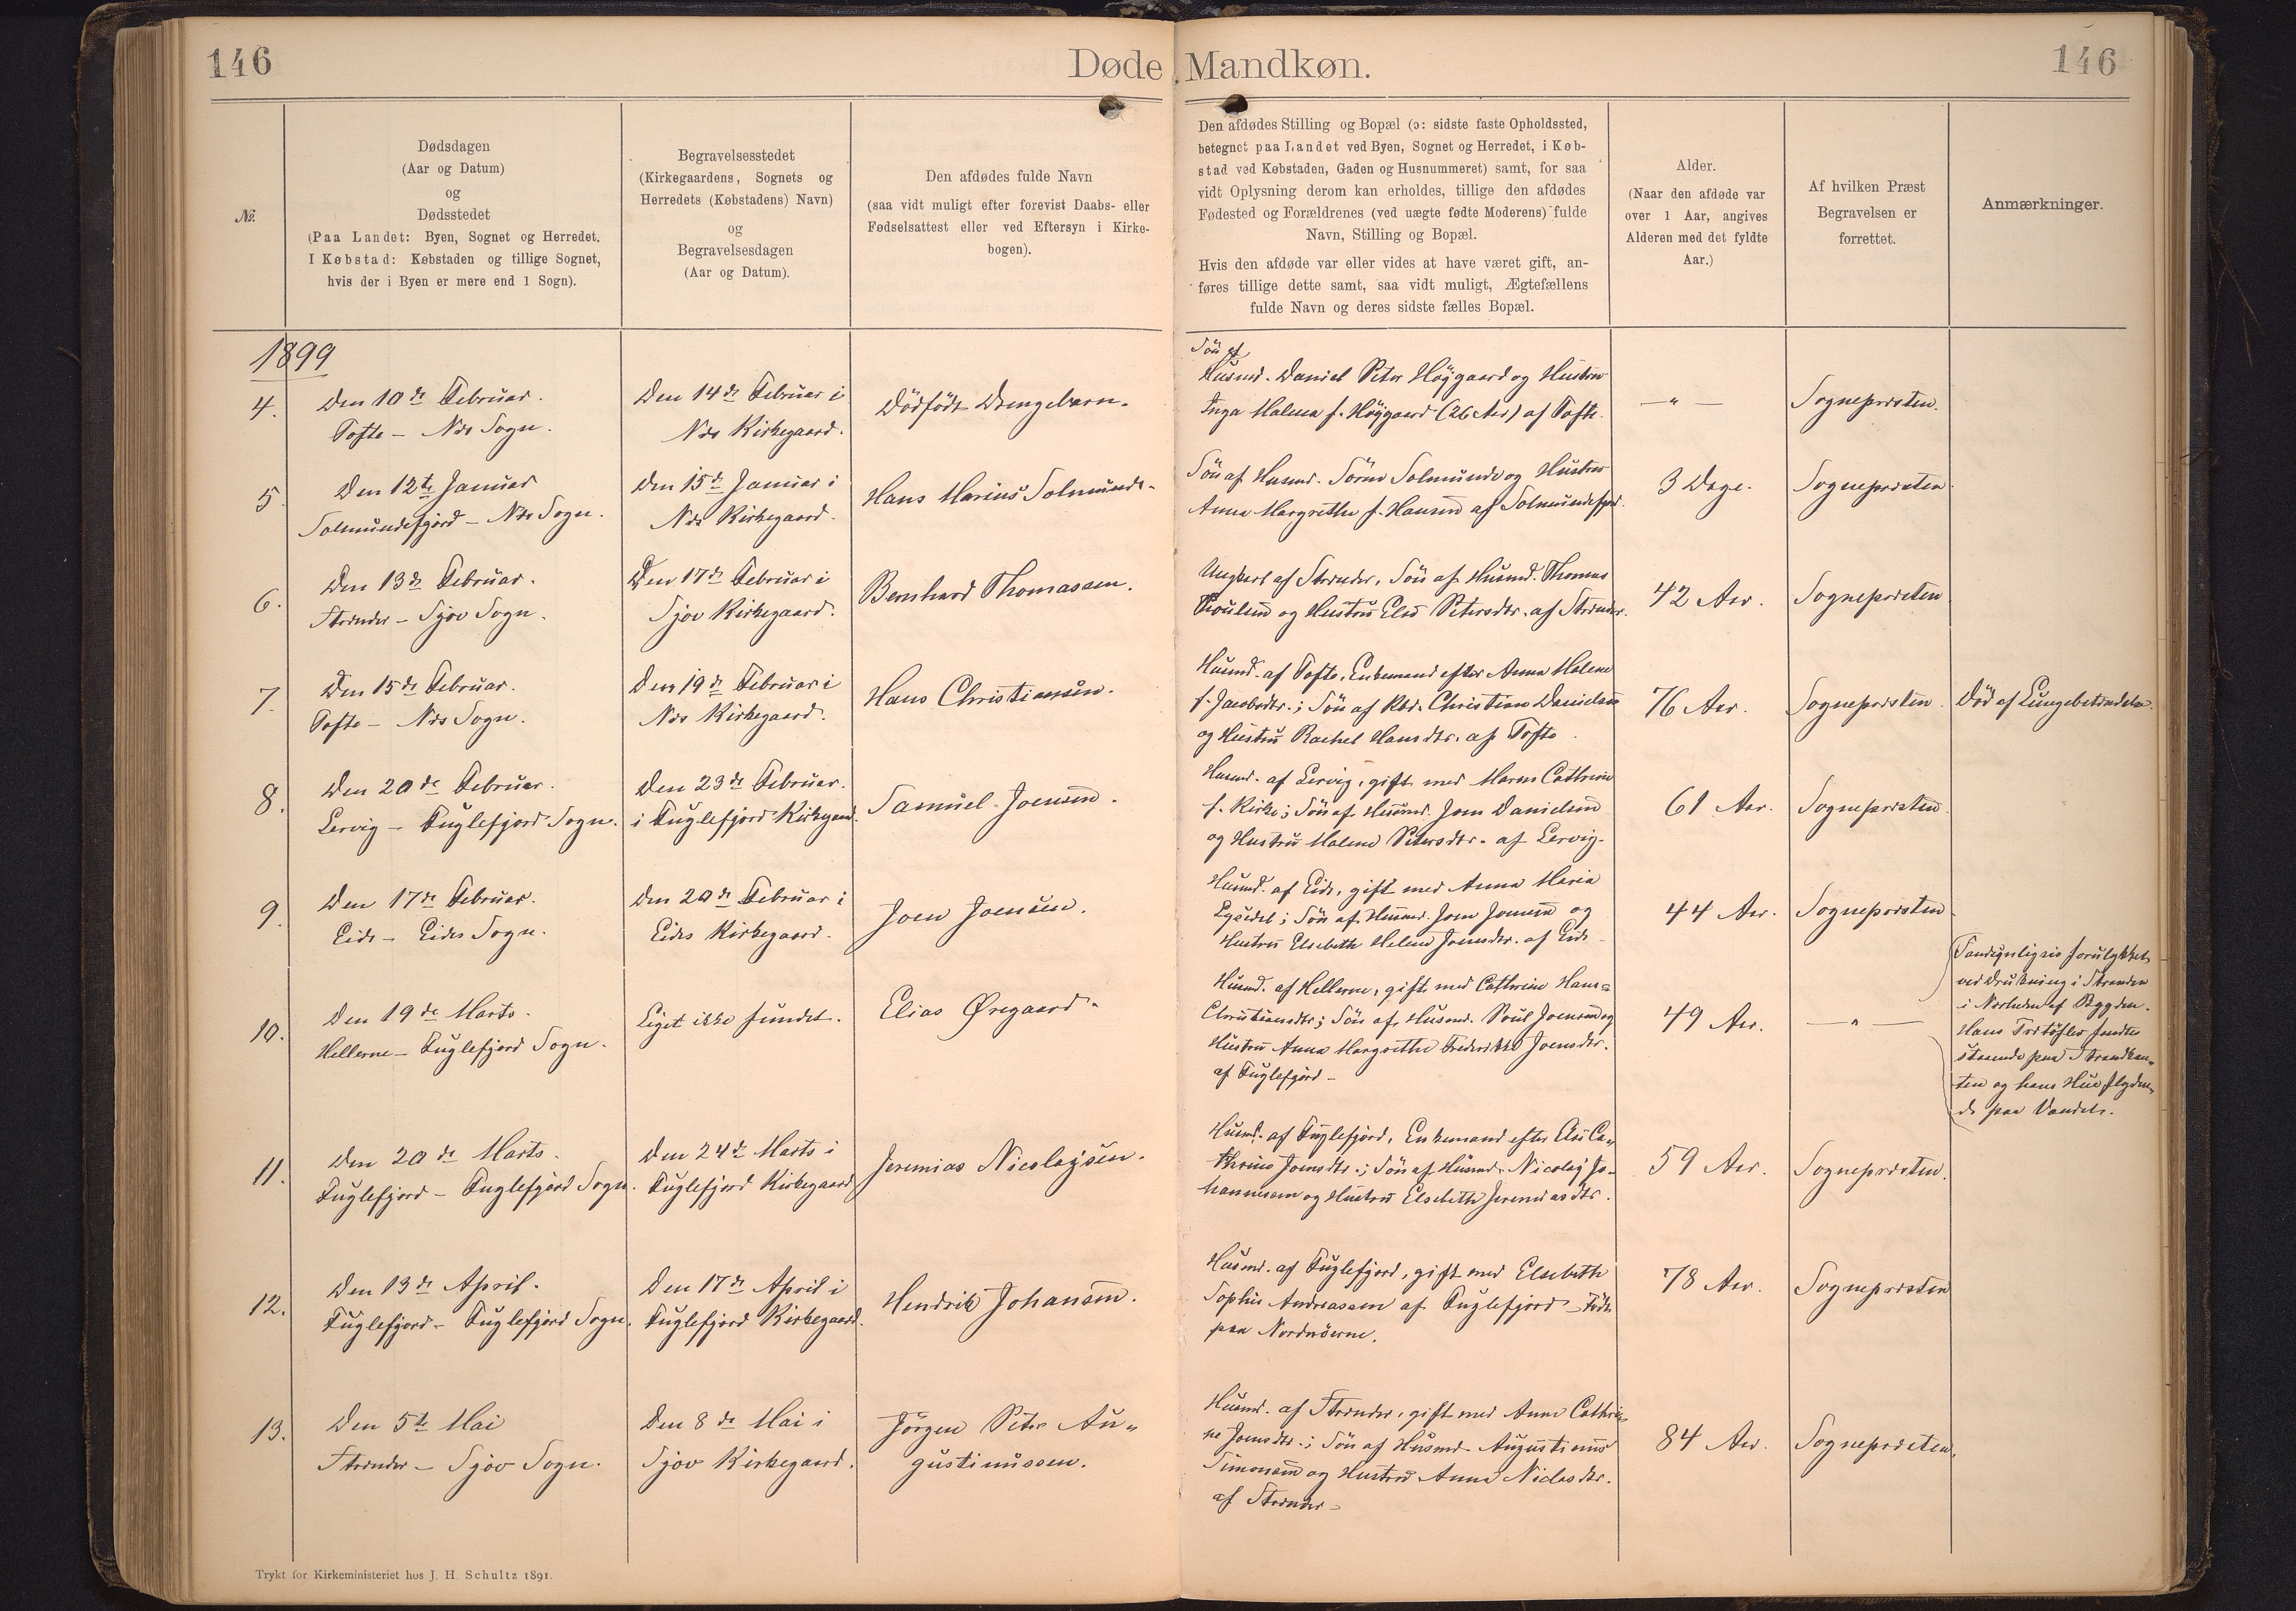 146
Døde Mandkøn.
146
№.
Dødsdagen
(Aar og Datum)
og
Dødsstedet
(Paa Landet: Byen, Sognet og Herredet.
I Købstad: Købstaden og tillige Sognet,
hvis der i Byen er mere end 1 Sogn).
Begravelsesstedet
(Kirkegaardens, Sognets og
Herredets (Købstadens) Navn)
og
Begravelsesdagen
(Aar og Datum).
Den afdødes fulde Navn
(saa vidt muligt efter forevist Daabs- eller
Fødselsattest eller ved Eftersyn i Kirke-
bogen).
Den afdødes Stilling og Bopæl (ɔ: sidste faste Opholdssted,
betegnet paa Landet ved Byen, Sognet og Herredet, i Køb-
stad ved Købstaden, Gaden og Husnummeret) samt, for saa
vidt Oplysning derom kan erholdes, tillige den afdødes
Fødested og Forældrenes (ved uægte fødte Moderens) fulde
Navn, Stilling og Bopæl.
Hvis den afdøde var eller vides at have været gift, an-
føres tillige dette samt, saa vidt muligt, Ægtefællens
fulde Navn og deres sidste fælles Bopæl.
Alder.
(Naar den afdøde var
over 1 Aar, angives
Alderen med det fyldte
Aar.)
Af hvilken Præst
Begravelsen er
forrettet.
Anmærkninger.
1899
4.
Den 10de Februar.
Tofte – Næs Sogn.
Den 14de Februar i
Næs Kirkegaard.
Dödfödt Drengebarn.
Sön af
Husmd. Daniel Peter Höjgaard og Hustru
Inga Malena f. Höjgaard (26 Aar) af Tofte.
— " —
Sognepræsten.
5.
Den 12te Januar
Solmundefjord – Næs Sogn.
Den 15de Januar i
Næs Kirkegaard.
Hans Marius Solmunde.
Sön af Husmd. Sörne Solmunde og Hustru
Anna Margrethe f. Hansen af Solmundefjord.
3 Dage.
Sognepræsten.
6.
Den 13de Februar.
Strænder – Sjov Sogn.
Den 17de Februar i
Sjov Kirkegaard.
Bernhard Thomassen.
Ungkarl af Strænder, Sön af Husmd. Thomas
Poulsen og Hustru Else Petersdtr. af Strænder.
42 Aar.
Sognepræsten
7.
Den 15de Februar.
Tofte – Næs Sogn.
Den 19de Februar i
Næs Kirkegaard.
Hans Christiansen.
Husmd. af Tofte, Enkemand efter Anna Malene
f. Jacobsdtr.; Sön af Kbd. Christian Danielsen
og Hustru Rachel Hansdtr. af Tofte.
76 Aar.
Sognepræsten.
Död af Lungebetændelse.
8.
Den 20de Februar.
Lervig – Fuglefjord Sogn.
Den 23de Februar.
i Fuglefjord Kirkegaard.
Samuel Joensen.
Husmd. af Lervig, gift med Maren Cathrine
f. Kirke; Sön af Husmd. Joen Danielsen
og Hustru Malene Petersdtr. af Lervig.
61 Aar.
Sognepræsten.
9.
Den 17de Februar.
Eide – Eides Sogn.
Den 20de Februar i
Eides Kirkegaard.
Joen Joensen.
Husmd. af Eide, gift med Anna Maria
; Sön af Husmd. Joen Joensen og
Hustru Elsebeth Helene Joensdtr. af Eide –
44 Aar.
Sognepræsten.
10.
Den 19de Marts.
Hellerne – Fuglefjord Sogn.
Liget ikke fundet.
Elias Øregaard.
Husmd. af Hellerne, gift med Cathrine Hans=
Christiansdtr; Sön af Husmd. Poul Joensen og
Hustru Anna Margrethe Frederikke Joensdtr.
af Fuglefjord –
49 Aar.
— " —
Sandsynligvis forulykket
ved Drukning i Stranden
i Nærheden af Bygden.
Hans Trætöfler fandtes
staaende paa Strandkan=
ten og hans Hue flyden=
de paa Vandet.
11.
Den 20de Marts.
Fuglefjord – Fuglefjord Sogn.
Den 24de Marts i
Fuglefjord Kirkegaard
Jeremias Nicolajsen.
Husmd. af Fuglefjord, Enkemand efter Ca=
thrine Joensdtr.; Sön af Husmd. Nicolaj Jo=
hannesen og Hustru Elsebeth Jeremiasdtr.
59 Aar.
Sognepræsten.
12.
Den 13de April.
Fuglefjord – Fuglefjord Sogn.
Den 17de April i
Fuglefjord Kirkegaard.
Hendrik Johansen.
Husmd. af Fuglefjord, gift med Elsebeth
Sophie Andreassen af Fuglefjord – Födt
paa Norderöerne.
78 Aar.
Sognepræsten
13.
Den 5te Mai
Strænder – Sjov Sogn.
Den 8de Mai i
Sjov Kirkegaard.
Jörgen Peter Au=
gustinussen.
Husmd. af Strænder, gift med Anne Cathri=
ne Joensdtr.; Sön af Husmd. Augustinus
Simonsen og Hustru Anna Niclasdtr.
af Strænder –
84 Aar.
Sognepræsten.
Trykt for Kirkeministeriet hos J. H. Schultz 1891.